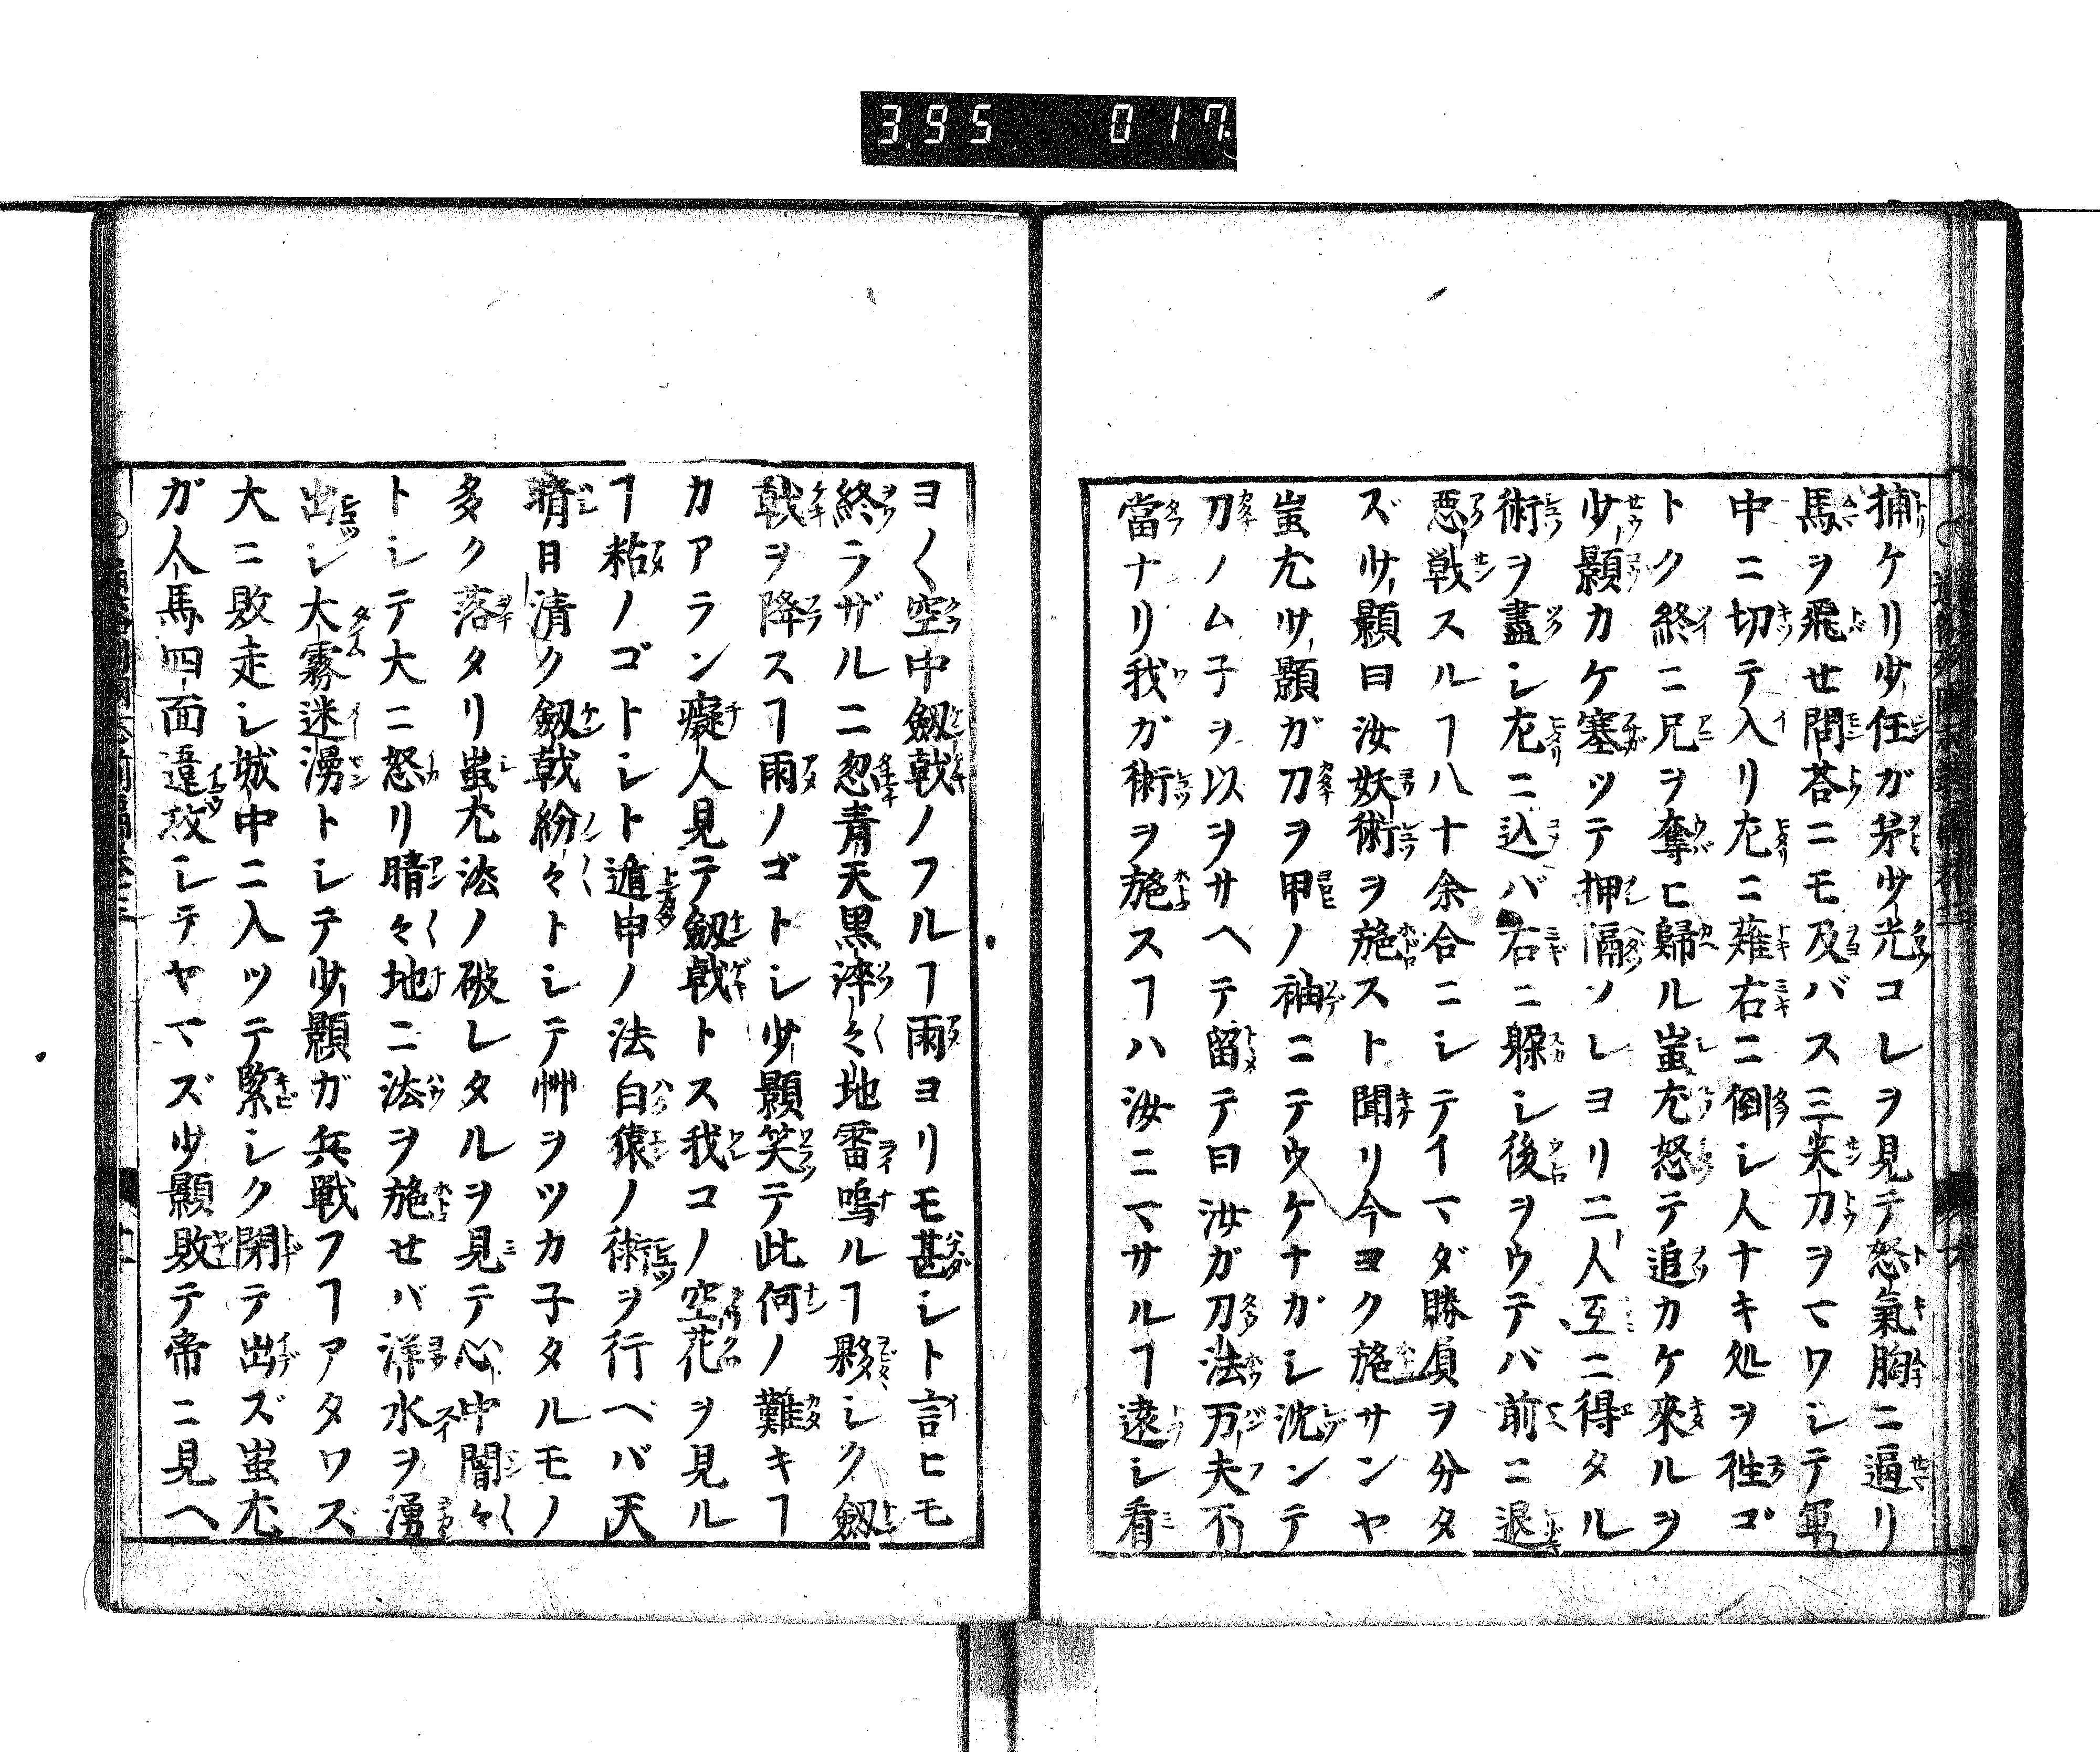 395 017
捕ケリ少任ガ弟少光コレヲ見テ怒氣胸ニ逼リ
馬ヲ飛せ問荅ニモ及バス三尖刀ヲマワシテ軍
中ニ切テ入リ左ニ薙右ニ倒シ人ナキ処ヲ徃ゴ
トク終ニ兄ヲ奪ヒ歸ル蚩尤怒テ追カケ來ルヲ
少顥カケ塞ッテ押隔ソレヨリ二人互ニ得タル
術ヲ盡シ左ニ込バ右ニ躱シ後ヲウテバ前ニ退
悪戦スルヿ八十余合ニシテイマダ勝負ヲ分タ
ズ少顥曰汝妖術ヲ施スト聞リ今ヨク施サンヤ
蚩尤少顥ガ刀ヲ甲ノ袖ニテウケナガシ沈ンテ
刀ノム子ヲ以ヲサヘテ留テ曰汝ガ刀法万夫不
當ナリ我ガ術ヲ施スヿハ汝ニマサルヿ遠シ看
ヨ〱空中劔戟ノフルヿ雨ヨリモ甚シト言ヒモ
終ラザルニ忽青天黒滓々地雷鳴ルヿ夥シク劔
戟ヲ降スヿ雨ノゴトシ少顥笑テ此何ノ難キヿ
カアラン癡人見テ劔戟トス我コノ空花ヲ見ル
ヿ粘ノゴトシト遁甲ノ法白猿ノ術ヲ行ヘバ天
晴日清ク劔戟紛々トシテ艸ヲツカ子タルモノ
多ク落タリ蚩尤法ノ破レタルヲ見テ心中闇々
トシテ大ニ怒リ晴々地ニ法ヲ施せバ洋水ヲ湧
出シ大霧迷湧トシテ少顥ガ兵戦フヿアタワズ
大ニ敗走シ城中ニ入ッテ緊シク閉テ出ズ蚩尤
ガ人馬四面遶攻シテヤマズ少顥敗テ帝ニ見ヘ